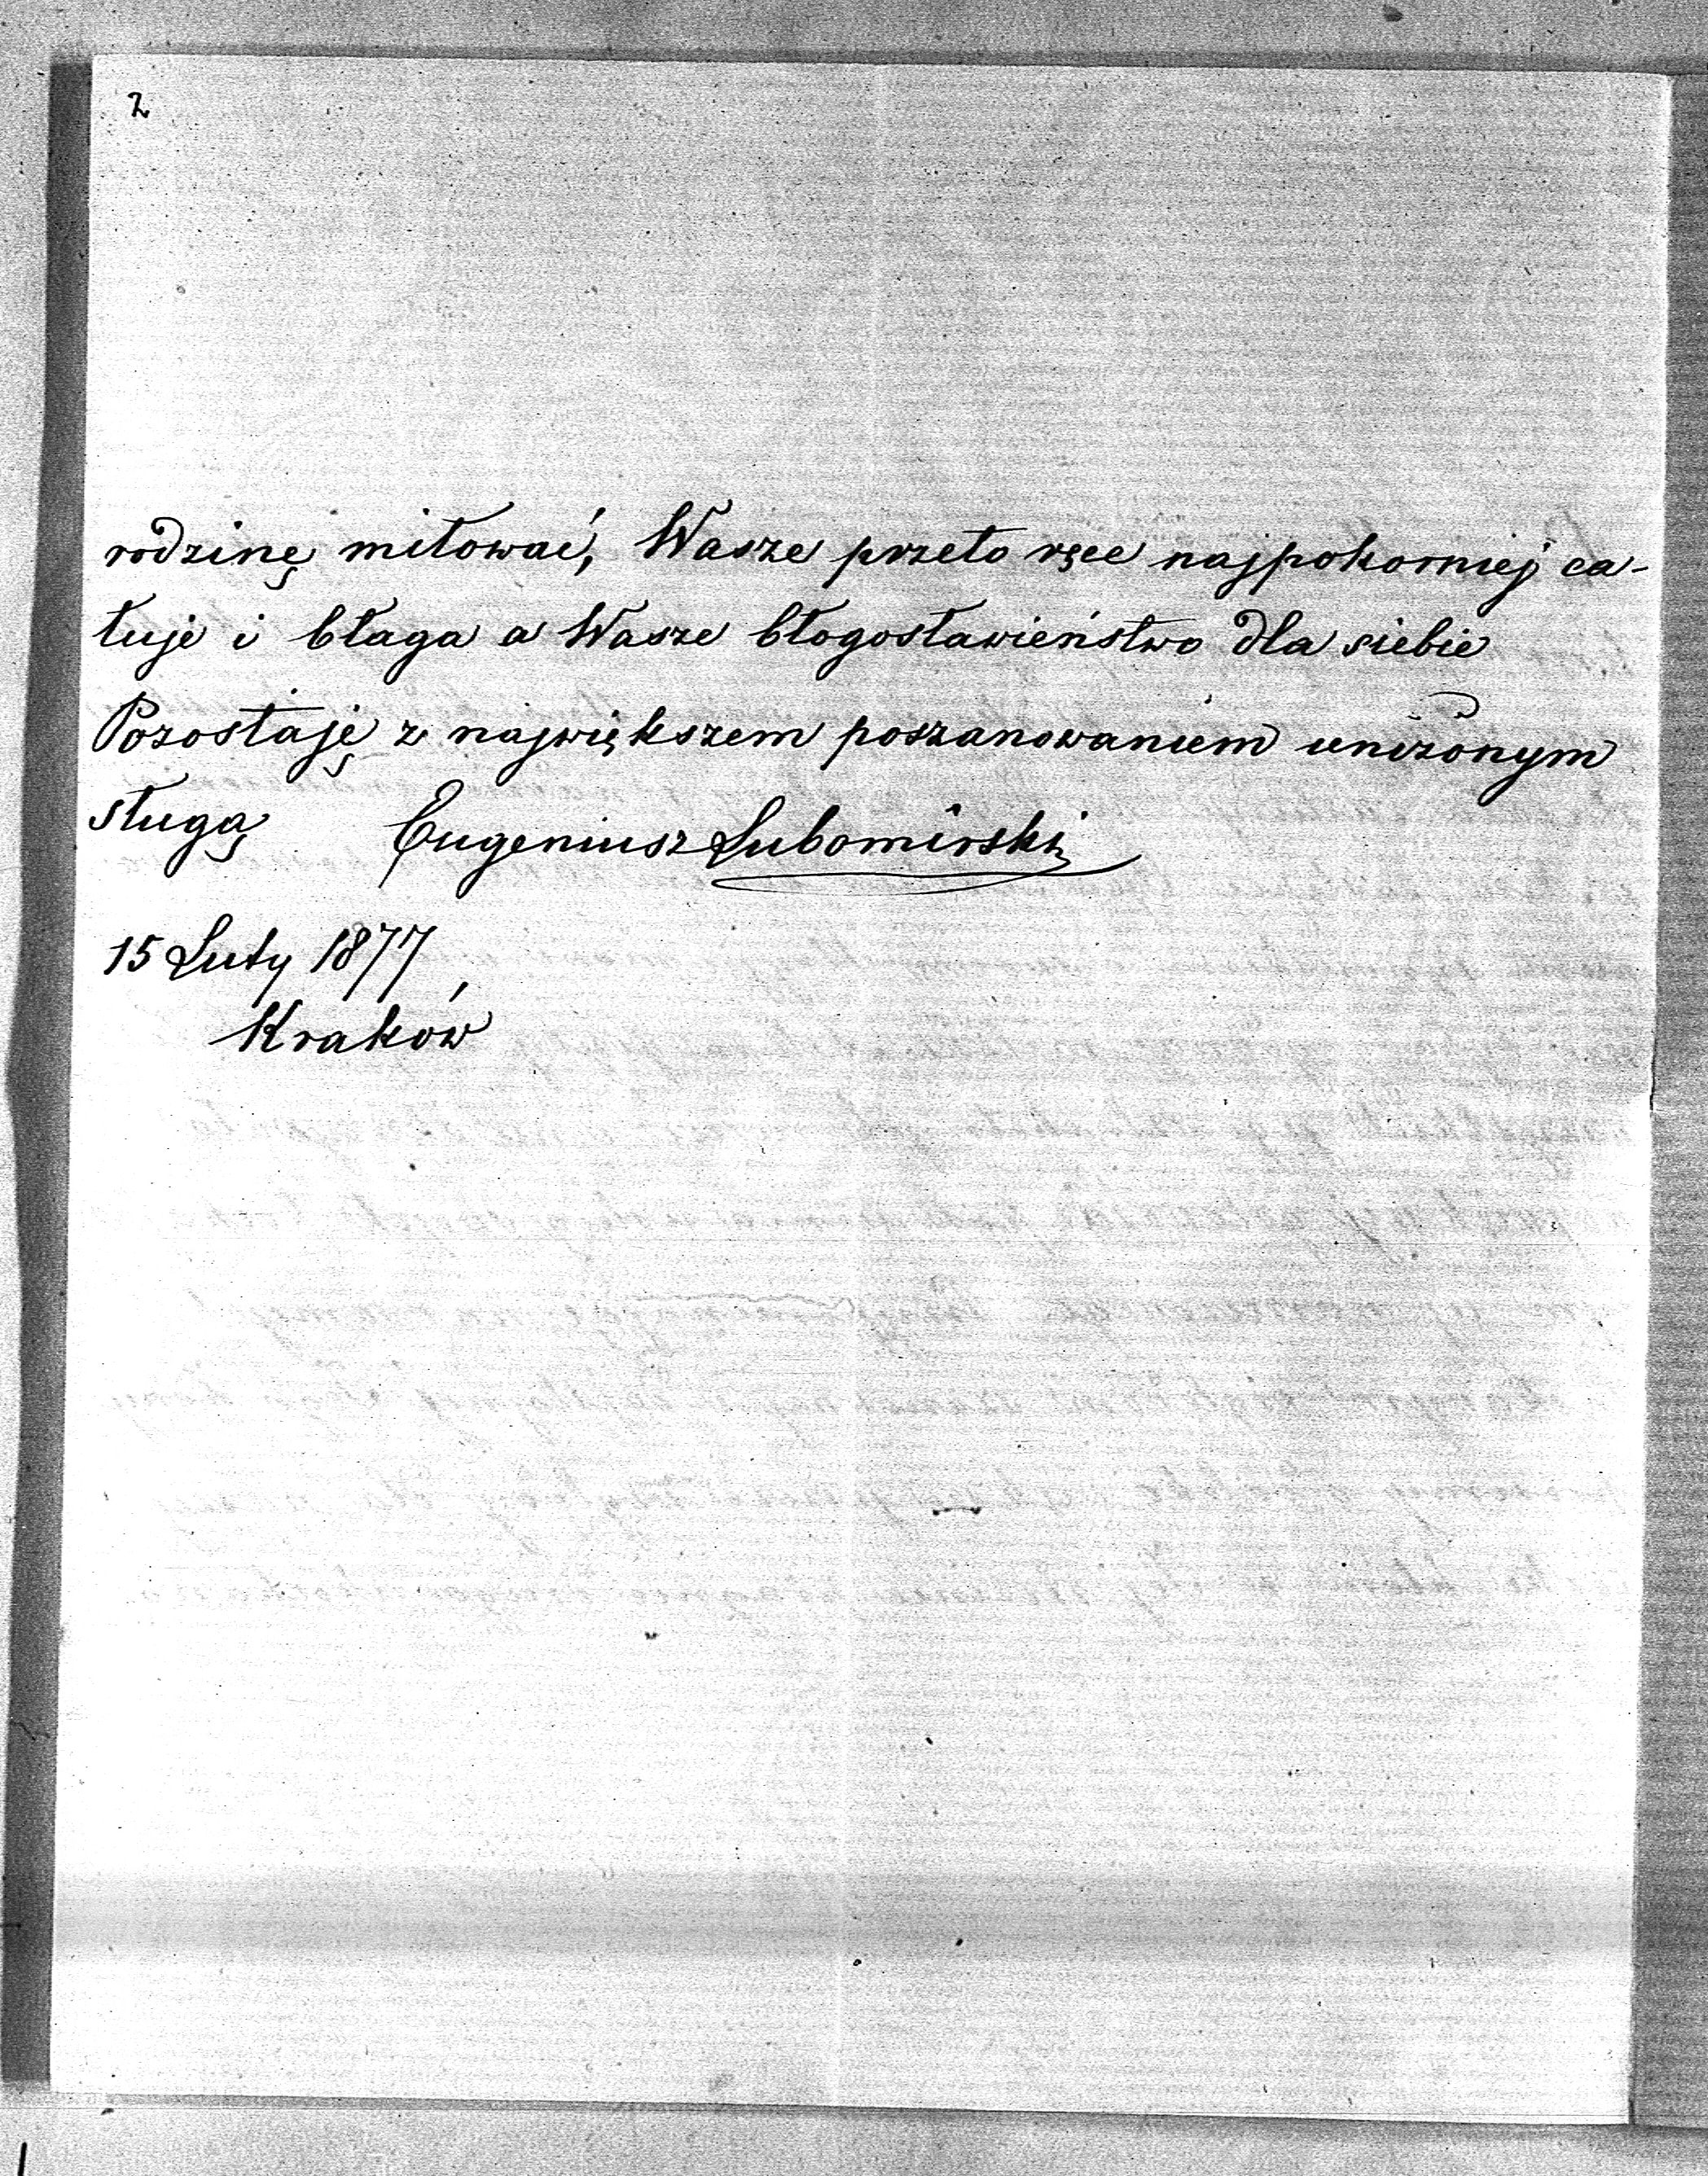 2
rodzinę miłować, Wasze przeto ręce najpokorniej ca-
łuje i błaga o Wasze błogosławieństwo dla siebie
Pozostaję z największem poszanowaniem uniżonym
sługą Eugeniusz Lubomirski
15 Luty 1877
Kraków